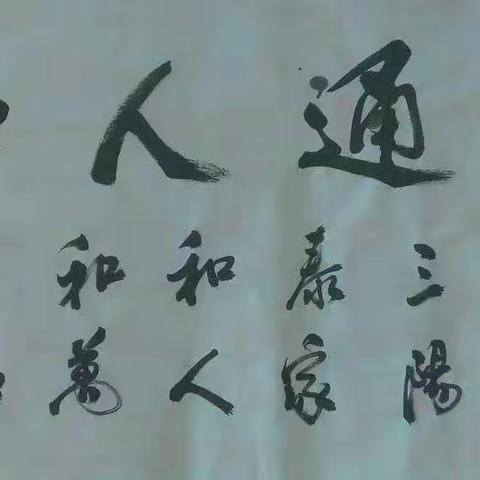 通人
三陽
泰家
和人
和萬